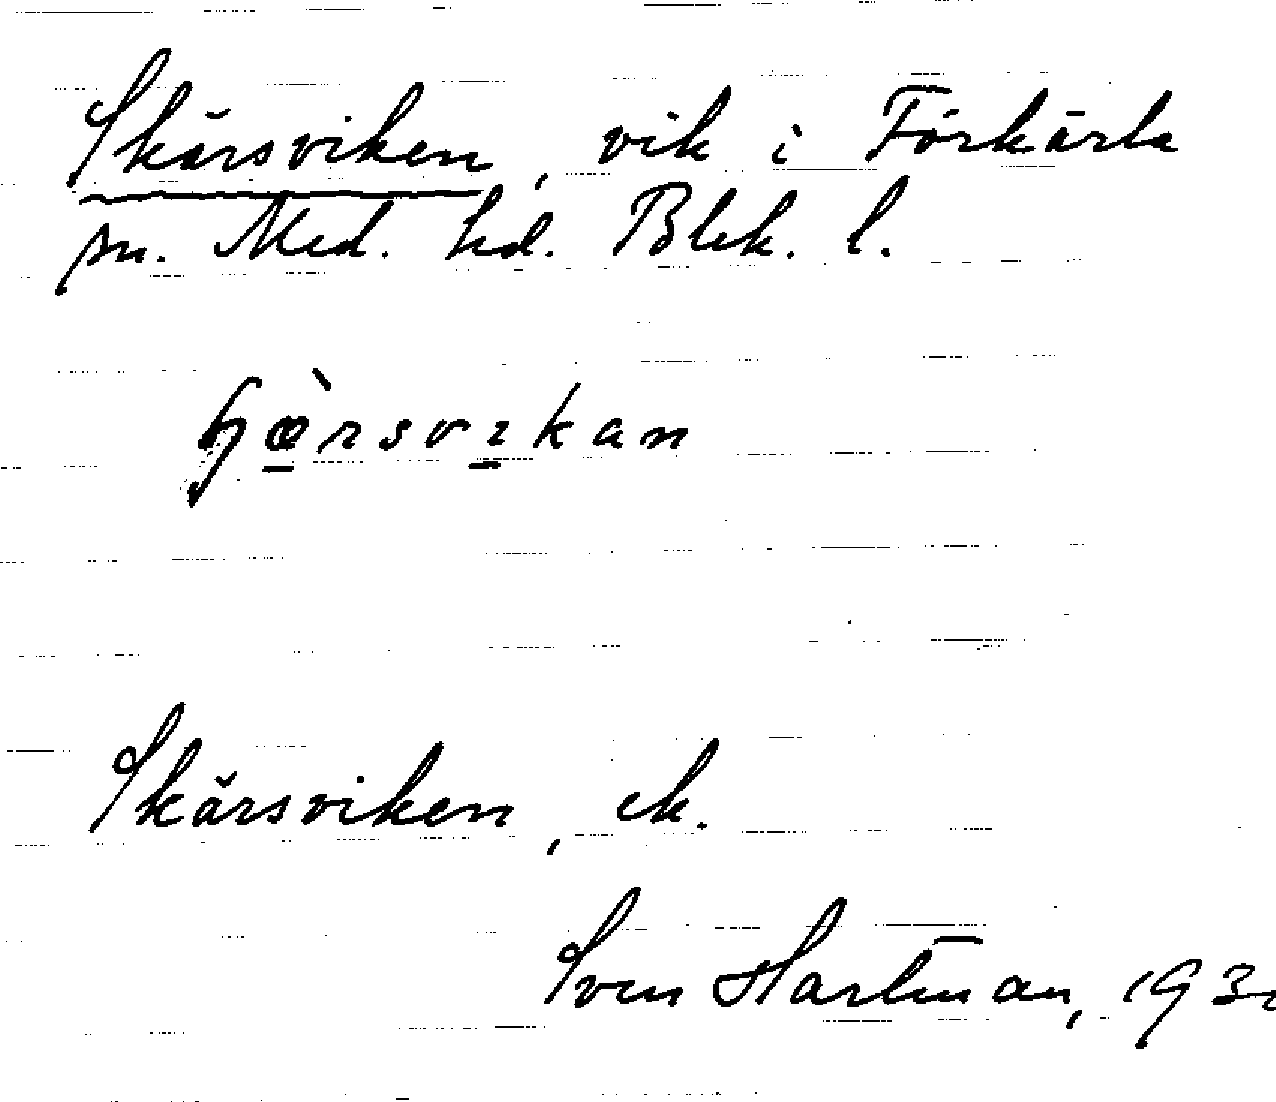 Skärsviken, vik i Förkärla
sn. Med. hd. Blek. l.
Skärsviken, ek.
Sven Hartman, 193